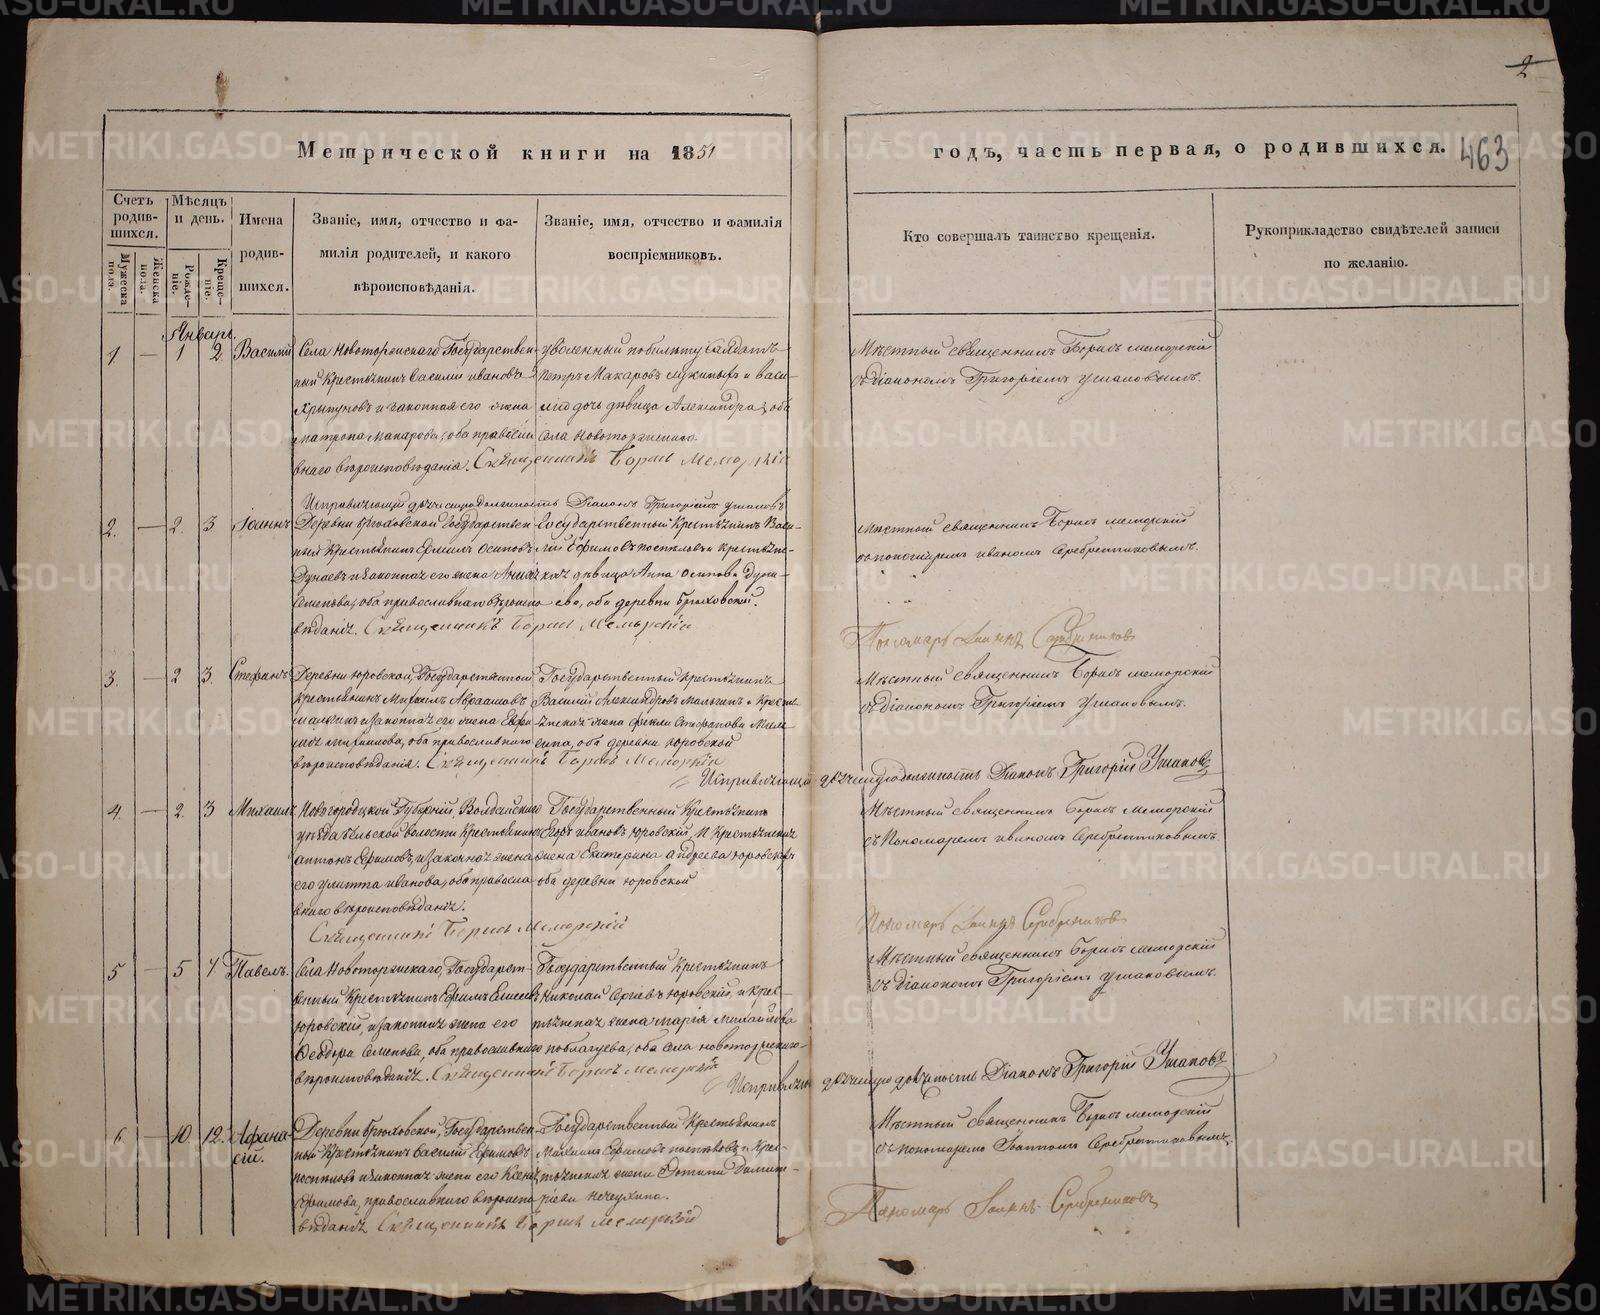 2
463
Метрической книги на 1851
годъ, часть первая, о родившихся.
Счетъ родив-шихся.
Мужеска пола.
Женска пола.
Мѣсяцъ и день.
Рожде-ніе.
Креще-ніе.
Имена родив-шихся.
Званіе, имя, отчество и фа-
милія родителей, и какого
вѣроисповѣданія.
Званіе, имя, отчество и фамилія
воспріемниковъ.
Кто совершалъ таинство крещенія.
Рукоприкладство свидѣтелей записи
по желанію.
Январь.
1 — 1 2. Василий
Села Новоторжскаго Государствен-
ный Крестьянинъ Василий Ивановъ
и законная его жена
Матрона Макарова, оба правосла-
внаго вѣроисповѣданія. Священникъ Борисъ Меморскій
уволенный по билету Салдатъ
Петръ Макаровъ и Васи-
дочь дѣвица Александра, оба
села Новоторжскаго.
Мѣстный священникъ Борисъ Меморскій
съ діакономъ Григоріемъ Ушаковымъ.
Діаконъ Григорій Ушаковъ
2. — 2. 3. Іоаннъ
Деревни Брюховской Государствен-
ный Крестьянинъ Осиповъ
Дунаевъ и законная его жена
Семенова, оба православнаго вѣроиспо-
вѣданія. Священникъ Борисъ Меморскій
Государственный Крестьянинъ Васи-
лій Ефимовъ Поспѣловъ и крестьян-
ская дѣвица Анна Осипова Дуна-
ева, оба деревни Брюховской.
Мѣстный священникъ Борисъ Меморскій
съ пономаремъ Иваномъ Серебрениковымъ.
Пономарь Іоаннъ Серебрениковъ
3. — 2 3. Стефанъ
Деревни Юровской, Государственный
Крестьянинъ Михаилъ Авраамовъ
и законная его жена
Михаилова, оба православнаго
вѣроисповѣданія. Священникъ Борисъ Меморскій
Государственный Крестьянинъ
Василий Александровъ и Кресть-
янская жена Фекла Стефанова
оба деревни Юровской
Мѣстный священникъ Борисъ Меморскій
съ діакономъ Григоріемъ Ушаковымъ.
Исправляющій должность Діаконъ Григорій Ушаковъ
4. — 2. 3 Михаилъ
Новгородской Губерніи, Волдайского
уѣзда волости Крестьянинъ
Антонъ Ефимовъ, и законная жена
его Улитта Иванова, оба правосла-
внаго вѣроисповѣданія.
Священникъ Борисъ Меморскій
Государственный Крестьянинъ
Егоръ Ивановъ Юровский, и Крестьянская
жена Екатерина Андреева Юровская
оба деревни Юровской
Мѣстный священникъ Борисъ Меморскій
съ Пономаремъ Иваномъ Серебрениковымъ
Пономарь Іоаннъ Серебрениковъ
5 — 5 7 Павелъ.
Села Новоторжскаго, Государст-
венный Крестьянинъ Ефимъ
Юровский, и законная жена его
Феодора Семенова, оба православнаго
вѣроисповѣданія. Священникъ Борисъ Меморскій
Государственный Крестьянинъ
Николай Юровский, и крес-
тьянская жена Мария Михайлова
оба села Новоторжскаго.
Мѣстный священникъ Борисъ Меморскій
съ діакономъ Григоріемъ Ушаковымъ.
Діаконъ Григорій Ушаковъ
6. — 10 12. Афана-
сій.
Деревни Брюховской, Государствен-
ный Крестьянинъ Василий Ефимовъ
Поспѣловъ и законная жена его
Ефимова, православнаго вѣроиспо-
вѣданія Священникъ Борисъ Меморскій
Государственный Крестьянинъ
Ефимовъ Поспѣловъ и Крес-
тьянская жена Фотиния
Мѣстный священникъ Борисъ Меморскій
съ пономаремъ Іоанномъ Серебрениковымъ.
Пономарь Іоаннъ Серебрениковъ
METRIKI.GASO-URAL.RU